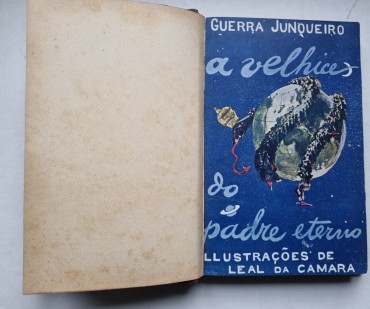 GUERRA JUNQUEIRO
a velhice
do
padre eterno
LLUSTRAÇÕES DE
LEAL DA CAMARA